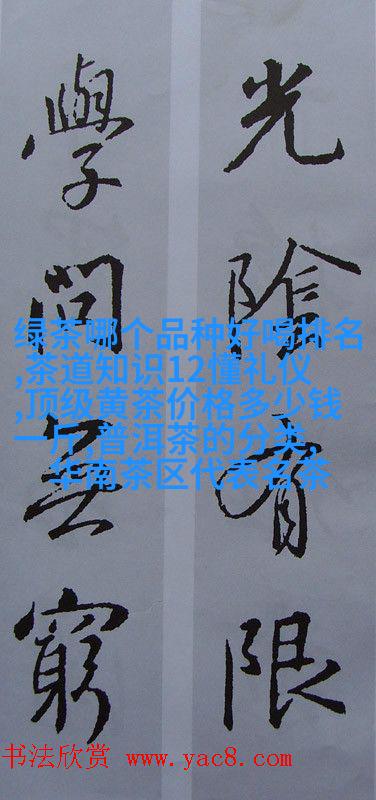 光陰有限
學問無窮
绿茶哪个品种好喝排名
,茶道知识12懂礼仪
,顶级黄茶价格多少钱
一斤,普洱茶的分类,
华南茶区代表名茶
书法欣赏 www.yac8.com